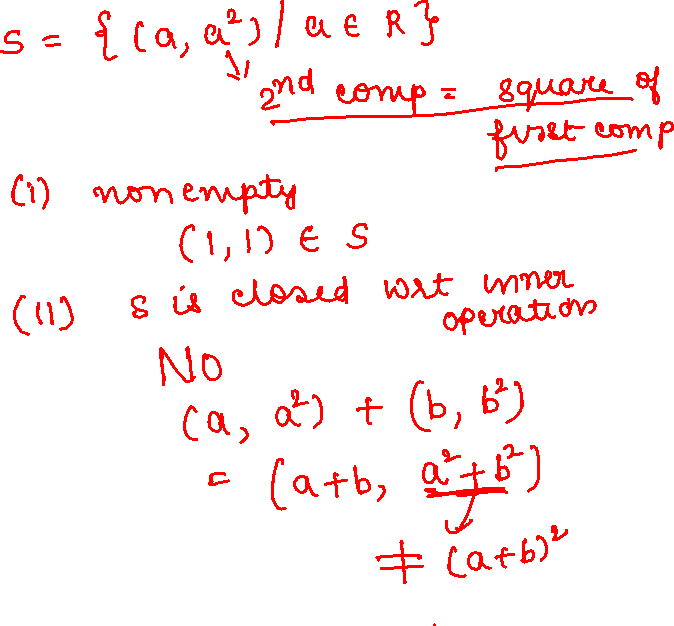 S = { (a, a²) / a ∈ R }
2nd comp = square of
first comp
(i) non empty
(1, 1) ∈ S
(ii) S is closed wrt inner
operation
NO
(a, a²) + (b, b²)
= (a+b, a²+b²)
≠ (a+b)²